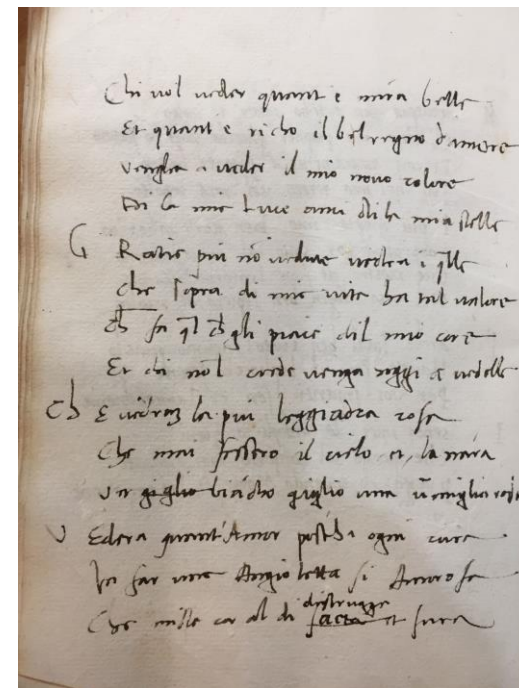 Chi vol veder quant e mira belle
Et quant e richo il bel regno d'amore
venghe a veder il mio novo colore
Di la mie luce anzi di la mia stelle
G Ratie piu nõ vedute vedra i q̃lle
Che sopra di mie vite ha tal valore
Ch̃ fa q̃l ch̃ gli piace dil mio core
Et chi nõl crede venga oggi a vedelle
Ch E vedrez la piu leggiadra rose
Che mai fessero il cielo et la nãra
giglio biãcho giglio una vermiglia
V Edera quant'Amor post'ha ogni cure
In far une Angioletta si Amorose
Che mille cor al di distrugge facia et fura